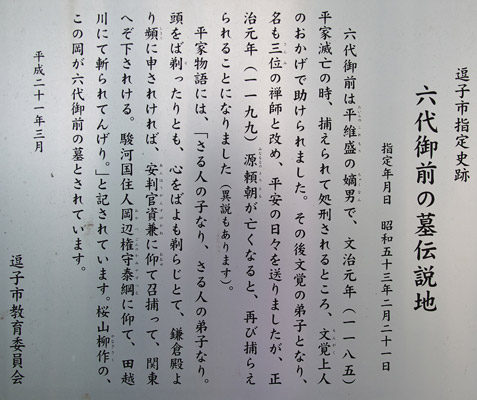 逗子市指定史跡
六代御前の墓伝説地
指定年月日 昭和五十三年二月二十一日
六代御前は平維盛の嫡男で、文治元年(一一八五)
平家滅亡の時、捕えられて処刑されるところ、文覚上人
のおかげで助けられました。その後文覚の弟子となり、
名も三位の禅師と改め、平安の日々を送りましたが、正
治元年(一一九九)源頼朝が亡くなると、再び捕らえ
られることになりました(異説もあります)。
平家物語には、「さる人の子なり、さる人の弟子なり。
頭をば剃ったりとも、心をばよも剃らじとて、鎌倉殿よ
り頻に申されければ、安判官資兼に仰て召捕って、関東
へぞ下されける。駿河国住人岡辺権守泰綱に仰て、田越
川にて斬られてんげり。」と記されています。桜山柳作の、
この岡が六代御前の墓とされています。
平成二十一年三月
逗子市教育委員会